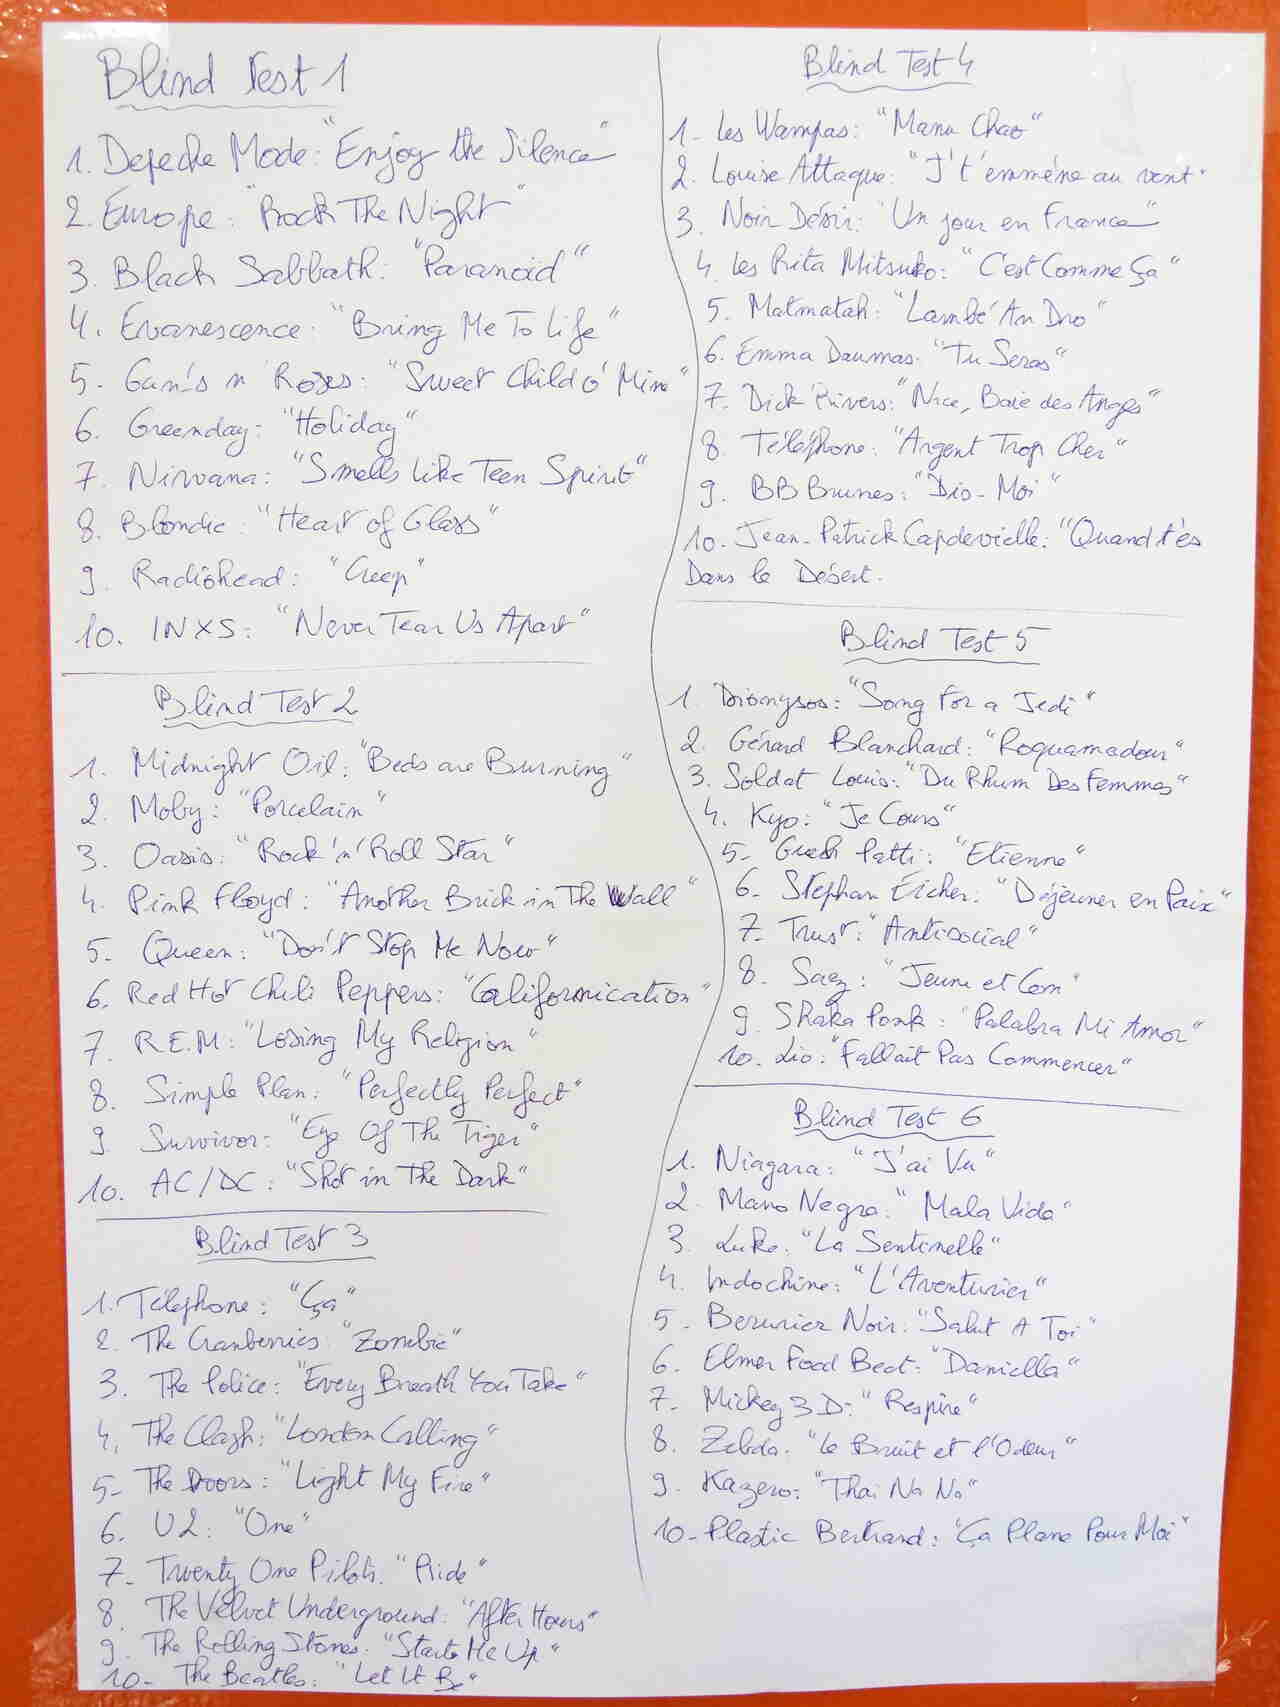 Blind Test 1
1. Depeche Mode: "Enjoy the Silence"
2. Europe: "Rock The Night"
3. Black Sabbath: "Paranoid"
4. Evanescence: "Bring Me To Life"
5. Gun's n' Roses: "Sweet Child O' Mine"
6. Greenday: "Holiday"
7. Nirvana: "Smells Like Teen Spirit"
8. Blondie: "Heart of Glass"
9. Radiohead: "Creep"
10. INXS: "Never Tear Us Apart"
Blind Test 2
1. Midnight Oil: "Beds are Burning"
2. Moby: "Porcelain"
3. Oasis: "Rock 'n' Roll Star"
4. Pink Floyd: "Another Brick in The Wall"
5. Queen: "Don't Stop Me Now"
6. Red Hot Chili Peppers: "Californication"
7. R.E.M: "Losing My Religion"
8. Simple Plan: "Perfectly Perfect"
9. Survivor: "Eye Of The Tiger"
10. AC/DC: "Shot in The Dark"
Blind Test 3
1. Téléphone: "Ça"
2. The Cranberries: "Zombie"
3. The Police: "Every Breath You Take"
4. The Clash: "London Calling"
5- The Doors: "Light My Fire"
6. U2: "One"
7- Twenty One Pilots: "Ride"
8. The Velvet Underground: "After Hours"
9. The Rolling Stones: "Starts Me Up"
10- The Beatles: "Let It Be"
Blind Test 4
1- Les Wampas: "Manu Chao"
2. Louise Attaque: "J't'emmène au vent"
3. Noir Désir: "Un jour en France"
4. Les Rita Mitsuko: "C'est Comme Ça"
5. Matmatah: "Lambé An Dro"
6. Emma Daumas: "Tu Seras"
7. Dick Rivers: "Nice, Baie des Anges"
8. Téléphone: "Argent Trop Cher"
9. BB Brunes: "Dis-Moi"
10. Jean-Patrick Capdevielle: "Quand t'es
Dans le Désert.
Blind Test 5
1. Dionysos: "Song For a Jedi"
2. Gérard Blanchard: "Roquamadour"
3. Soldat Louis: "Du Rhum Des Femmes"
4. Kyo: "Je Cours"
5- Guesh Patti: "Etienne"
6- Stephan Eicher: "Déjeuner en Paix"
7- Trust: "Antisocial"
8. Saez: "Jeune et Con"
9. Shaka Ponk: "Palabra Mi Amor"
10. Lio: "Fallait Pas Commencer"
Blind Test 6
1. Niagara: "J'ai Vu"
2. Mano Negra: "Mala Vida"
3. Luke: "La Sentinelle"
4. Indochine: "L'Aventurier"
5- Berurier Noir: "Salut A Toi"
6- Elmer Food Beat: "Daniella"
7- Mickey 3D: "Respire"
8. Zebda: "Le Bruit et l'Odeur"
9. Kazero: "Thaï Na Na"
10- Plastic Bertrand: "Ça Plane Pour Moi"